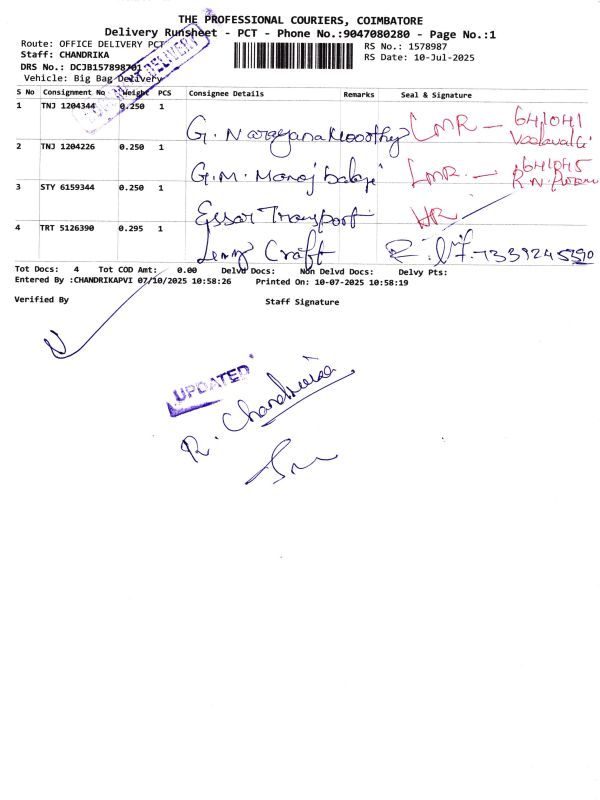 THE PROFESSIONAL COURIERS, COIMBATORE
Delivery Runsheet - PCT - Phone No.:9047080280 - Page No.:1
Route: OFFICE DELIVERY PCT
RS No.: 1578987
Staff: CHANDRIKA
RS Date: 10-Jul-2025
DRS No.: DCJB157898701
Vehicle: Big Bag Delivery
S No Consignment No Weight PCS Consignee Details Remarks Seal & Signature
1 TNJ 1204344 0.250 1 G. Narayana Moorthy LMR - 641041
2 TNJ 1204226 0.250 1 G.M. Manoj balaji LMR - 641045
3 STY 6159344 0.250 1 Essar Transport HR
4 TRT 5126390 0.295 1 Craft
Tot Docs: 4 Tot COD Amt: 0.00 Delvd Docs: Non Delvd Docs: Delvy Pts:
Entered By :CHANDRIKAPVI 07/10/2025 10:58:26 Printed On: 10-07-2025 10:58:19
Verified By Staff Signature
UPDATED
R. Chandrikaa